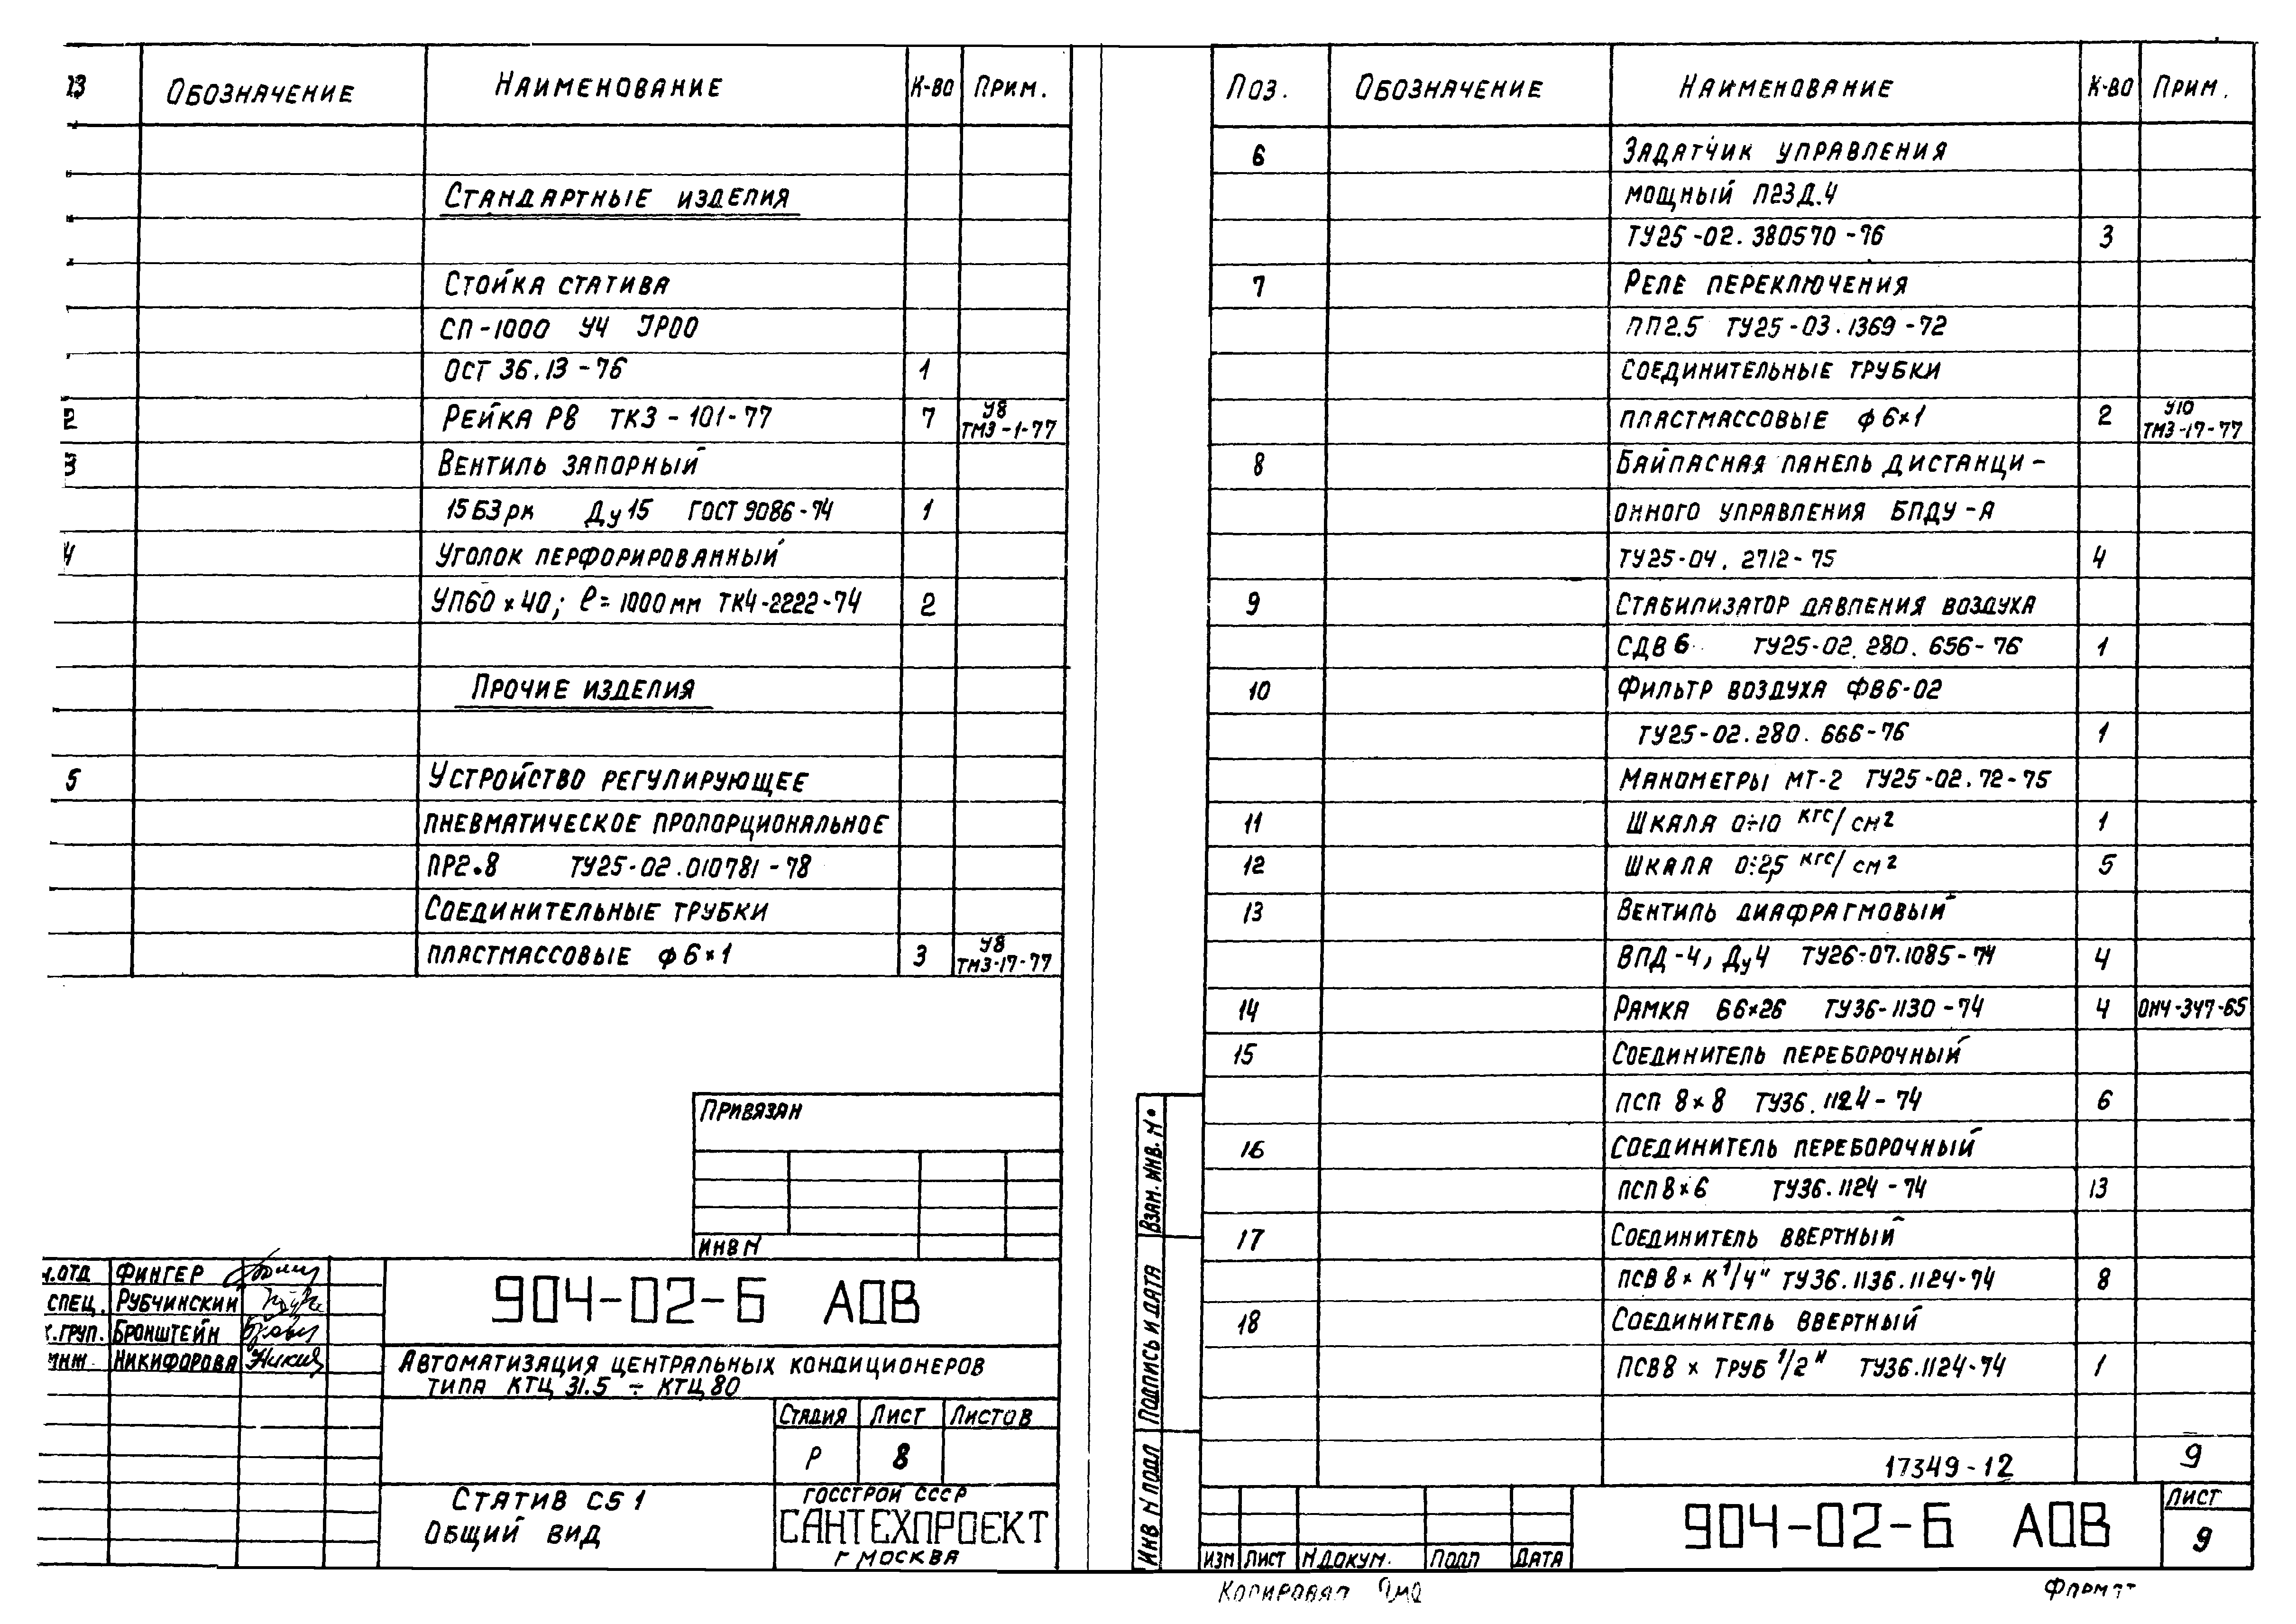 ОБОЗНАЧЕНИЕ НАИМЕНОВАНИЕ К-ВО ПРИМ.
СТАНДАРТНЫЕ ИЗДЕЛИЯ
СТОЙКА СТАТИВА
СП-1000 У4 JP00
ОСТ 36.13-76 1
2 РЕЙКА РВ ТК3-101-77 7 У8 ТМ3-1-77
3 ВЕНТИЛЬ ЗАПОРНЫЙ
15Б3рк Ду15 ГОСТ 9086-74 1
4 УГОЛОК ПЕРФОРИРОВАННЫЙ
УП60×40; ℓ=1000мм ТК4-2222-74 2
ПРОЧИЕ ИЗДЕЛИЯ
5 УСТРОЙСТВО РЕГУЛИРУЮЩЕЕ
ПНЕВМАТИЧЕСКОЕ ПРОПОРЦИОНАЛЬНОЕ
ПР2.8 ТУ25-02.010781-78
СОЕДИНИТЕЛЬНЫЕ ТРУБКИ
ПЛАСТМАССОВЫЕ ф6×1 3 У8 ТМ3-17-77
ПРИВЯЗАН
ИНВ N
Н.ОТД ФИНГЕР
СПЕЦ. РУБЧИНСКИЙ
К.ГРУП. БРОНШТЕЙН
ИНЖ НИКИФОРОВА
904-02-Б АОВ
АВТОМАТИЗАЦИЯ ЦЕНТРАЛЬНЫХ КОНДИЦИОНЕРОВ
ТИПА КТЦ 31.5 ÷ КТЦ 80
СТАДИЯ ЛИСТ ЛИСТОВ
Р 8
СТАТИВ С51
ОБЩИЙ ВИД
ГОССТРОЙ СССР
САНТЕХПРОЕКТ
Г МОСКВА
ПОЗ. ОБОЗНАЧЕНИЕ НАИМЕНОВАНИЕ К-ВО ПРИМ.
6 ЗАДАТЧИК УПРАВЛЕНИЯ
МОЩНЫЙ П23Д.4
ТУ25-02.380570-76 3
7 РЕЛЕ ПЕРЕКЛЮЧЕНИЯ
ПП2.5 ТУ25-03.1369-72
СОЕДИНИТЕЛЬНЫЕ ТРУБКИ
ПЛАСТМАССОВЫЕ ф6×1 2 У10 ТМ3-17-77
8 БАЙПАСНАЯ ПАНЕЛЬ ДИСТАНЦИ-
ОННОГО УПРАВЛЕНИЯ БПДУ-А
ТУ25-04.2712-75 4
9 СТАБИЛИЗАТОР ДАВЛЕНИЯ ВОЗДУХА
СДВ6 ТУ25-02.280.656-76 1
10 ФИЛЬТР ВОЗДУХА ФВ6-02
ТУ25-02.280.666-76 1
МАНОМЕТРЫ МТ-2 ТУ25-02.72-75
11 ШКАЛА 0÷10 кгс/см2 1
12 ШКАЛА 0÷2,5 кгс/см2 5
13 ВЕНТИЛЬ ДИАФРАГМОВЫЙ
ВПД-4, Ду4 ТУ26-07.1085-74 4
14 РАМКА 66×26 ТУ36-1130-74 4 ОН4-347-65
15 СОЕДИНИТЕЛЬ ПЕРЕБОРОЧНЫЙ
ПСП 8×8 ТУ36.1124-74 6
16 СОЕДИНИТЕЛЬ ПЕРЕБОРОЧНЫЙ
ПСП8×6 ТУ36.1124-74 13
17 СОЕДИНИТЕЛЬ ВВЕРТНЫЙ
ПСВ 8× К1/4" ТУ36.1136.1124-74 8
18 СОЕДИНИТЕЛЬ ВВЕРТНЫЙ
ПСВ8 × ТРУБ 1/2" ТУ36.1124-74 1
17349-12 9
ВЗАМ. ИНВ. N°
ПОДПИСЬ И ДАТА
ИНВ N ПОДЛ
ИЗМ ЛИСТ N ДОКУМ. ПОДП ДАТА
904-02-Б АОВ
ЛИСТ
9
Копировал
Формат